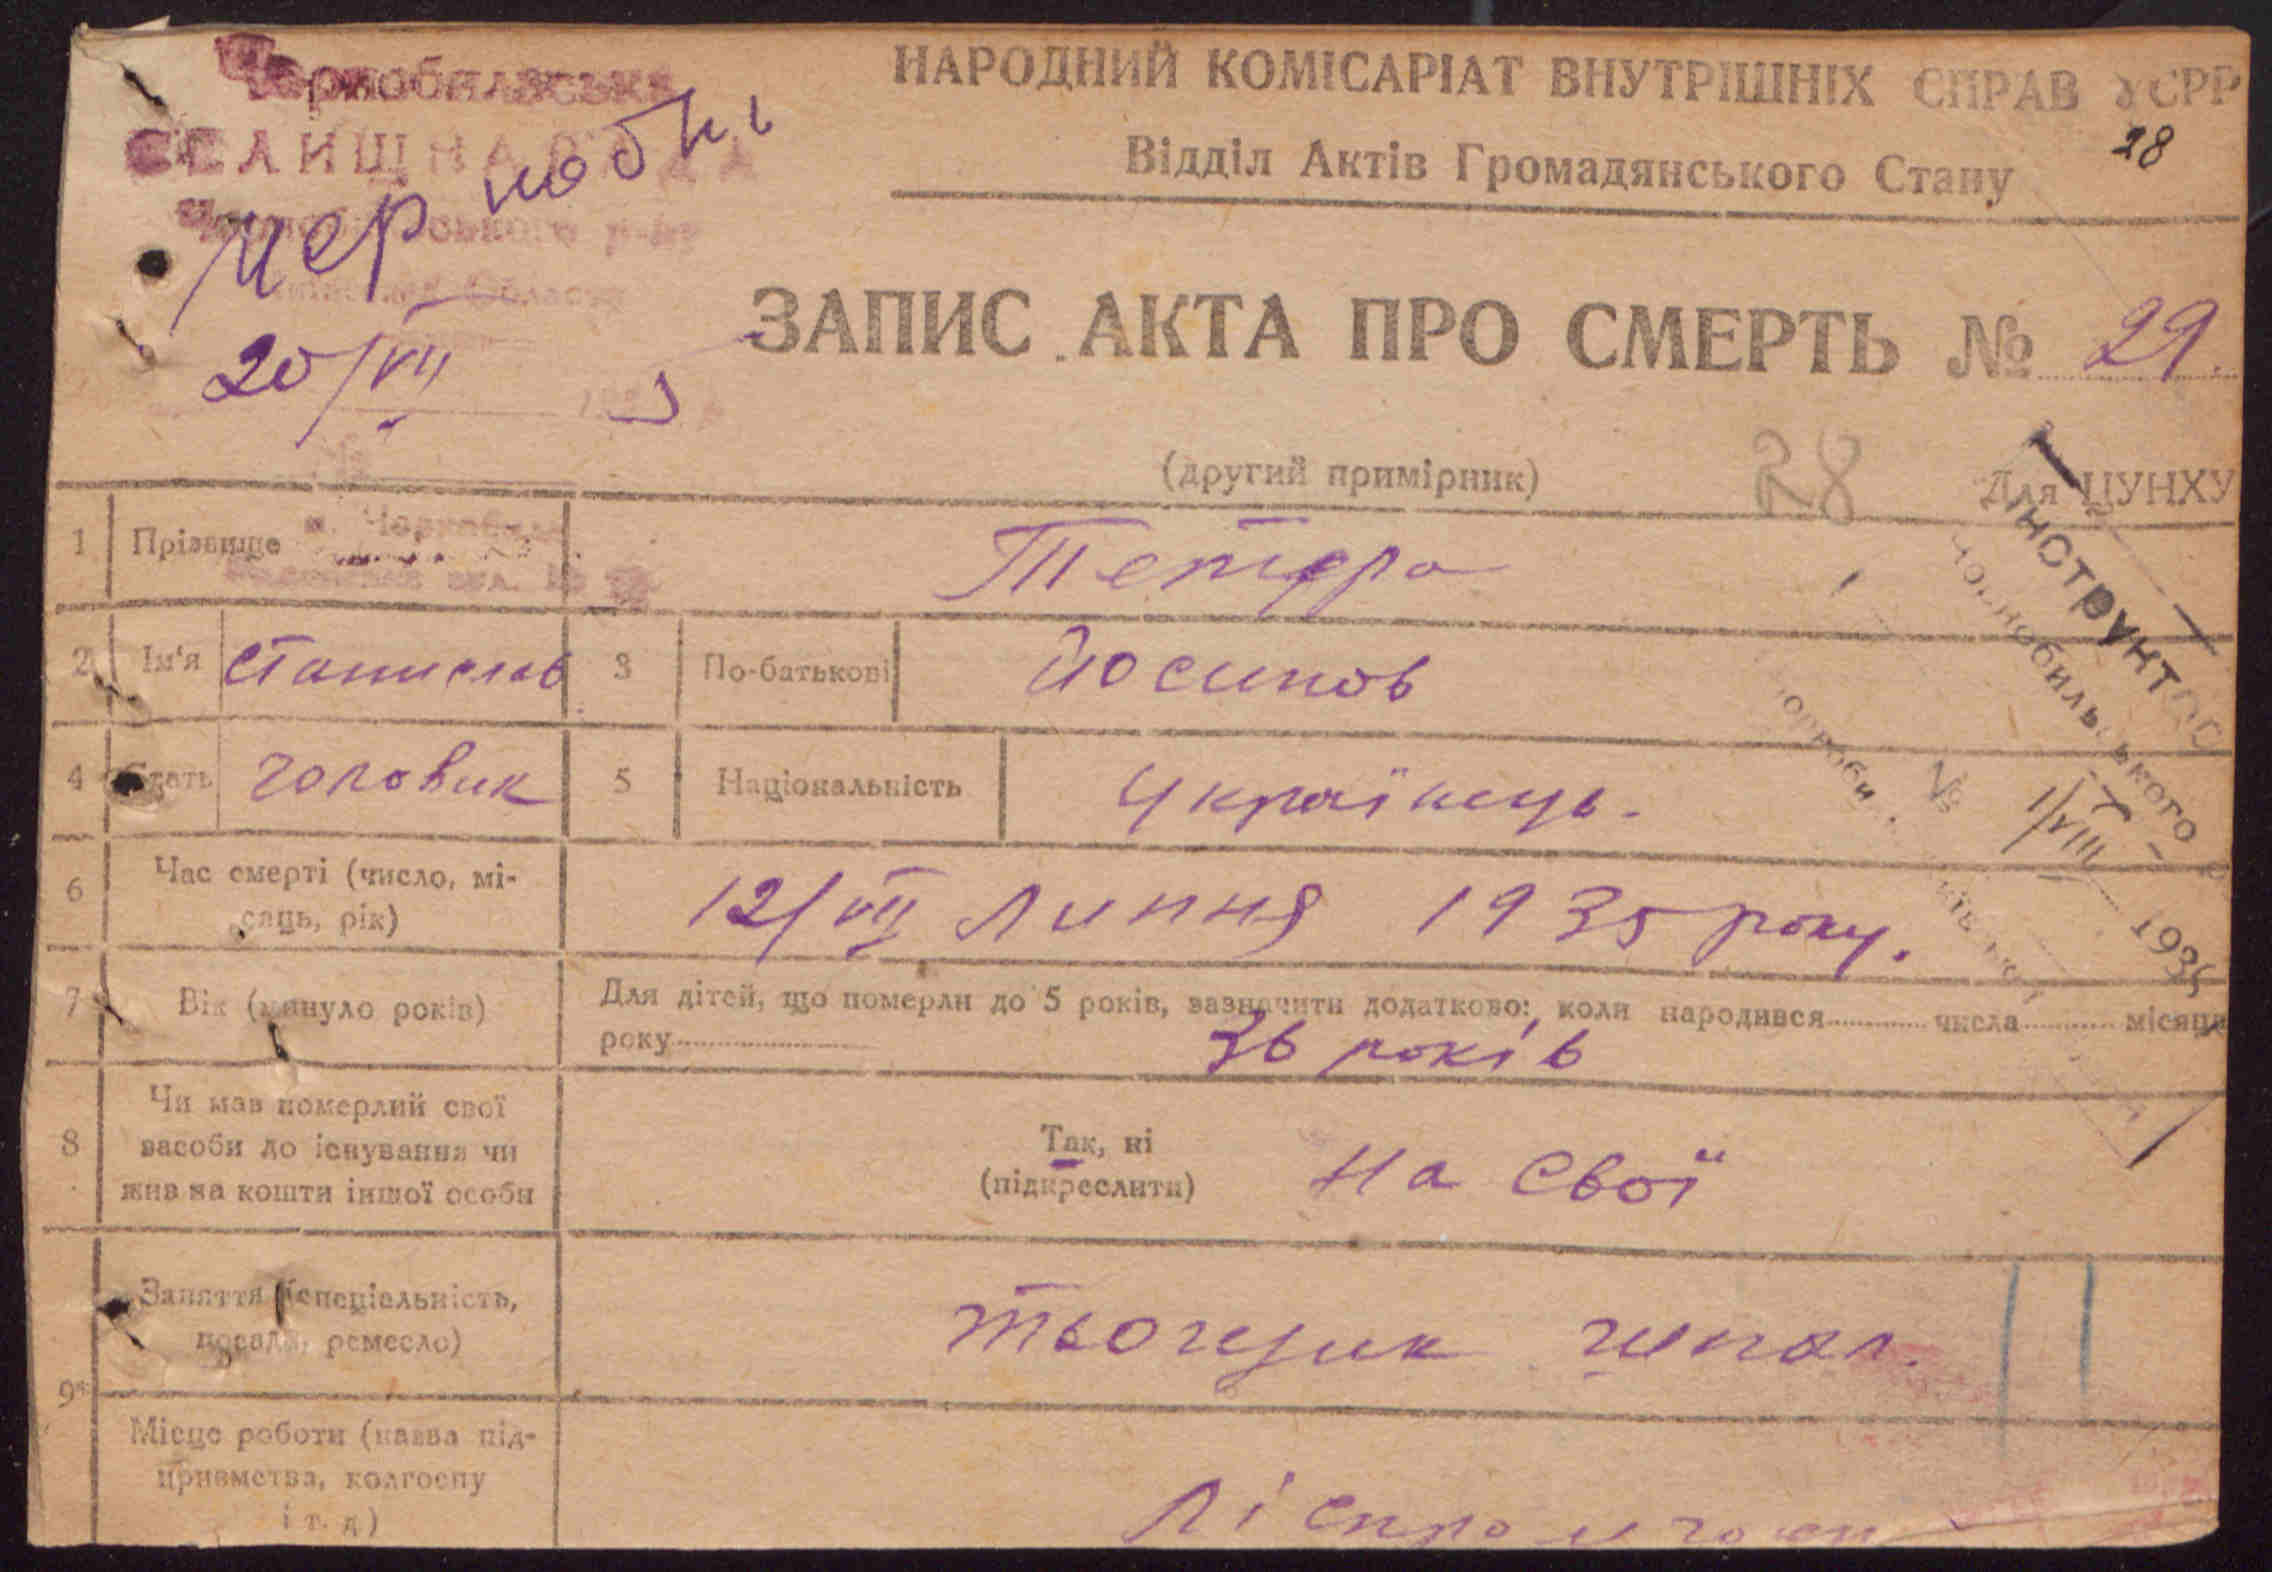 Чорнобильська
СЕЛИЩНА РАДА
Чорнобильського р-ну
Київської Області
Чернобиль
20/VII 5
НАРОДНИЙ КОМІСАРІАТ ВНУТРІШНІХ СПРАВ УСРР
28
Відділ Актів Громадянського Стану
ЗАПИС АКТА ПРО СМЕРТЬ № 29.
(другий примірник) 28 Для ЦУНХУ
м. Чорнобиль
1 Прізвище Тетера
2 Ім'я Станислав 3 По-батькові Йосипов
4 Стать чоловик 5 Національність Українець.
6 Час смерті (число, мі-
сяць, рік) 12/VII Липня 1935 року.
7 Вік (минуло років) Для дітей, що померли до 5 років, зазначити додатково: коли народився числа місяця
року 36 років
8 Чи мав померлий свої
засоби до існування чи
жив на кошти іншої особи
Так, ні
(підкреслити) На свої
9* Заняття (спеціальність,
посада, ремесло) тьощик шпал.
Місце роботи (назва під-
приємства, колгоспу
і т. д)
Інструктор
Чорнобильського
№
1/VIII 1935